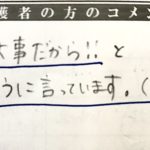 護者の方のコメン
大事だから!! と
うに言っています。(